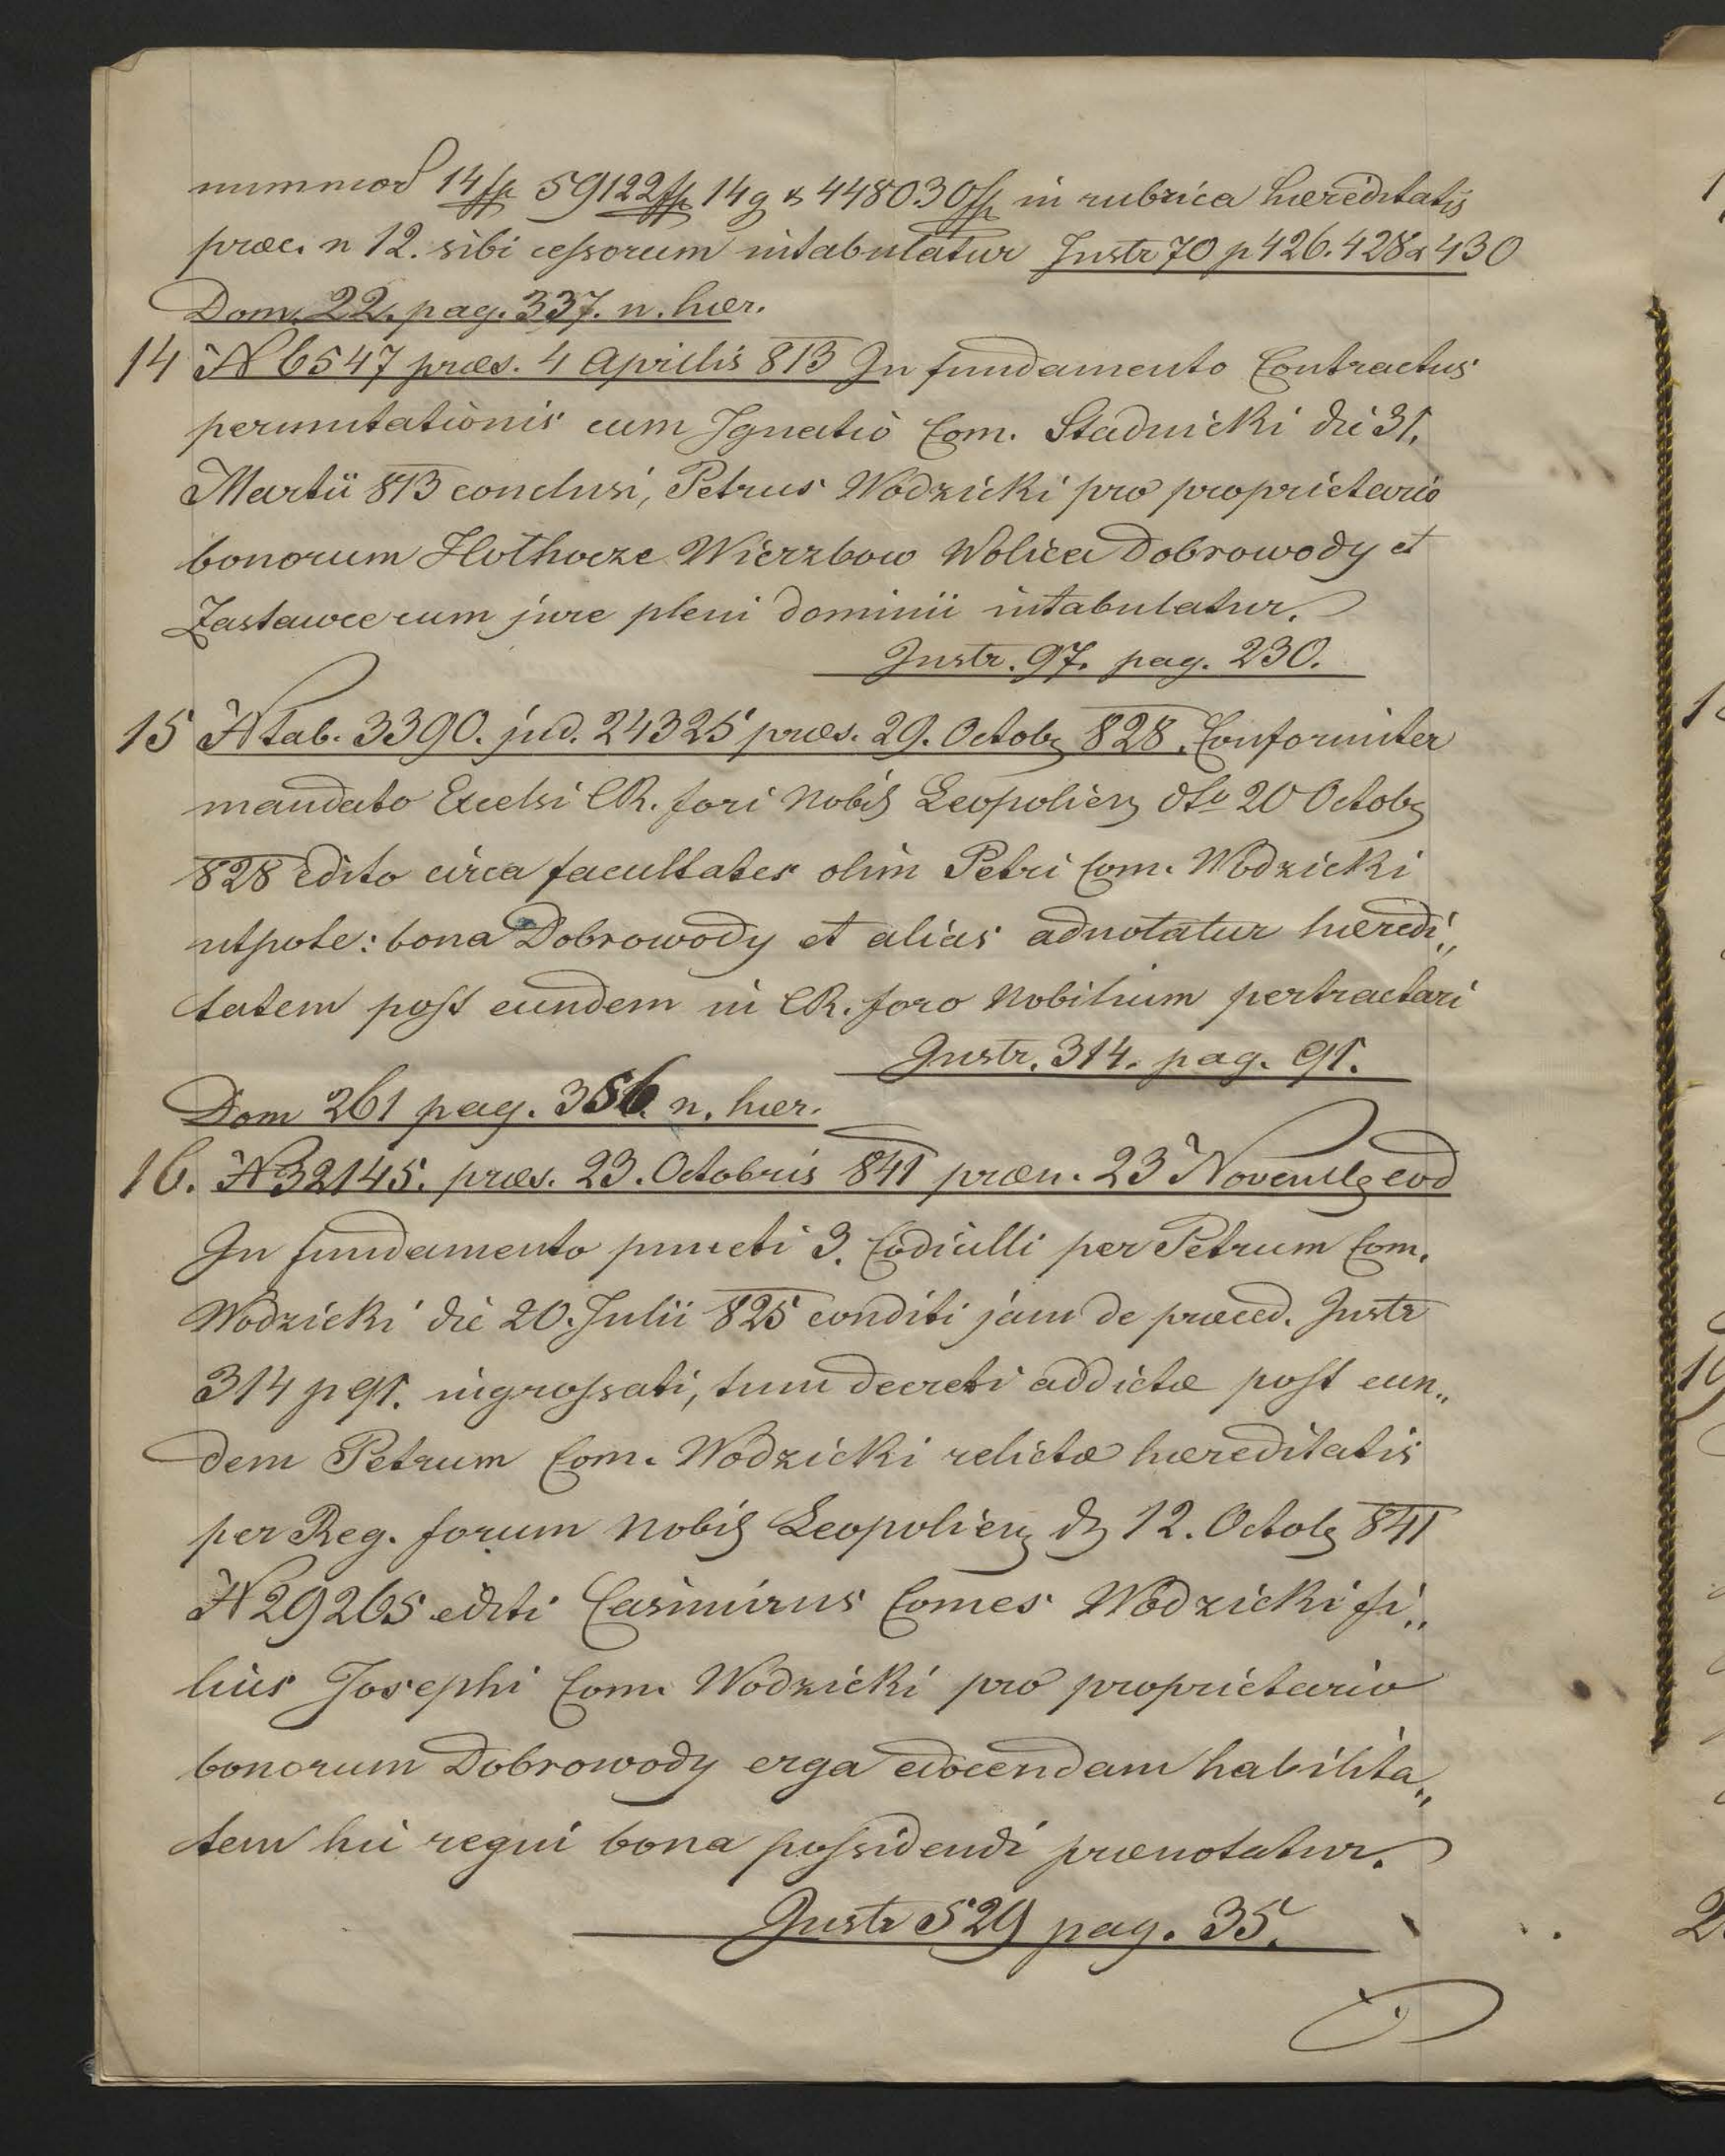 nummor 14 fp 59122 fp 14 g & 448030 fp in rubrica hæreditatis
præc. n 12. sibi cessorum intabulatur Instr 70 p 426. 428 & 430
Dom. 22. pag. 337. n. hær.
14 N 6547 præs. 4 Aprilis 813 In fundamento Contractus
permutationis cum Ignatio Com. Stadnicki die 31.
Martii 813 conclusi, Petrus Wodzicki pro proprietario
bonorum Hołhocze Wierzbow Wolica Dobrowody et
Zastawce cum jure pleni dominii intabulatur.
Instr. 97. pag. 230.
15 N tab. 3390. jud. 24325 præs. 29. Octobr 828. Conformiter
mandato Excelsi CR. fori Nobil Leopolien dto 20 Octobr
828 edito circa facultates olim Petri Com. Wodzicki
utpote: bona Dobrowody et alias adnotatur hæredi„
tatem post eundem in CR. foro Nobilium pertractari
Instr. 314. pag. 91.
Dom 261 pag. 356. n. hær.
16. N 32145. præs. 23. Octobris 841 præn. 23 Novembr eod
In fundamento puncti 3. Codicilli per Petrum Com.
Wodzicki die 20. Julii 825 conditi jam de præced. Instr
314 p 91. ingrossati, tum decreti addictæ post eun„
dem Petrum Com. Wodzicki relictæ hæreditatis
per Reg. forum Nobil Leopolien d 12. Octobr 841
N 29265 editi Casimirus Comes Wodzicki fi„
lius Josephi Com. Wodzicki pro proprietario
bonorum Dobrowody erga edocendam habilita„
tem hic regni bona possidendi prænotatur.
Instr 529 pag. 35.